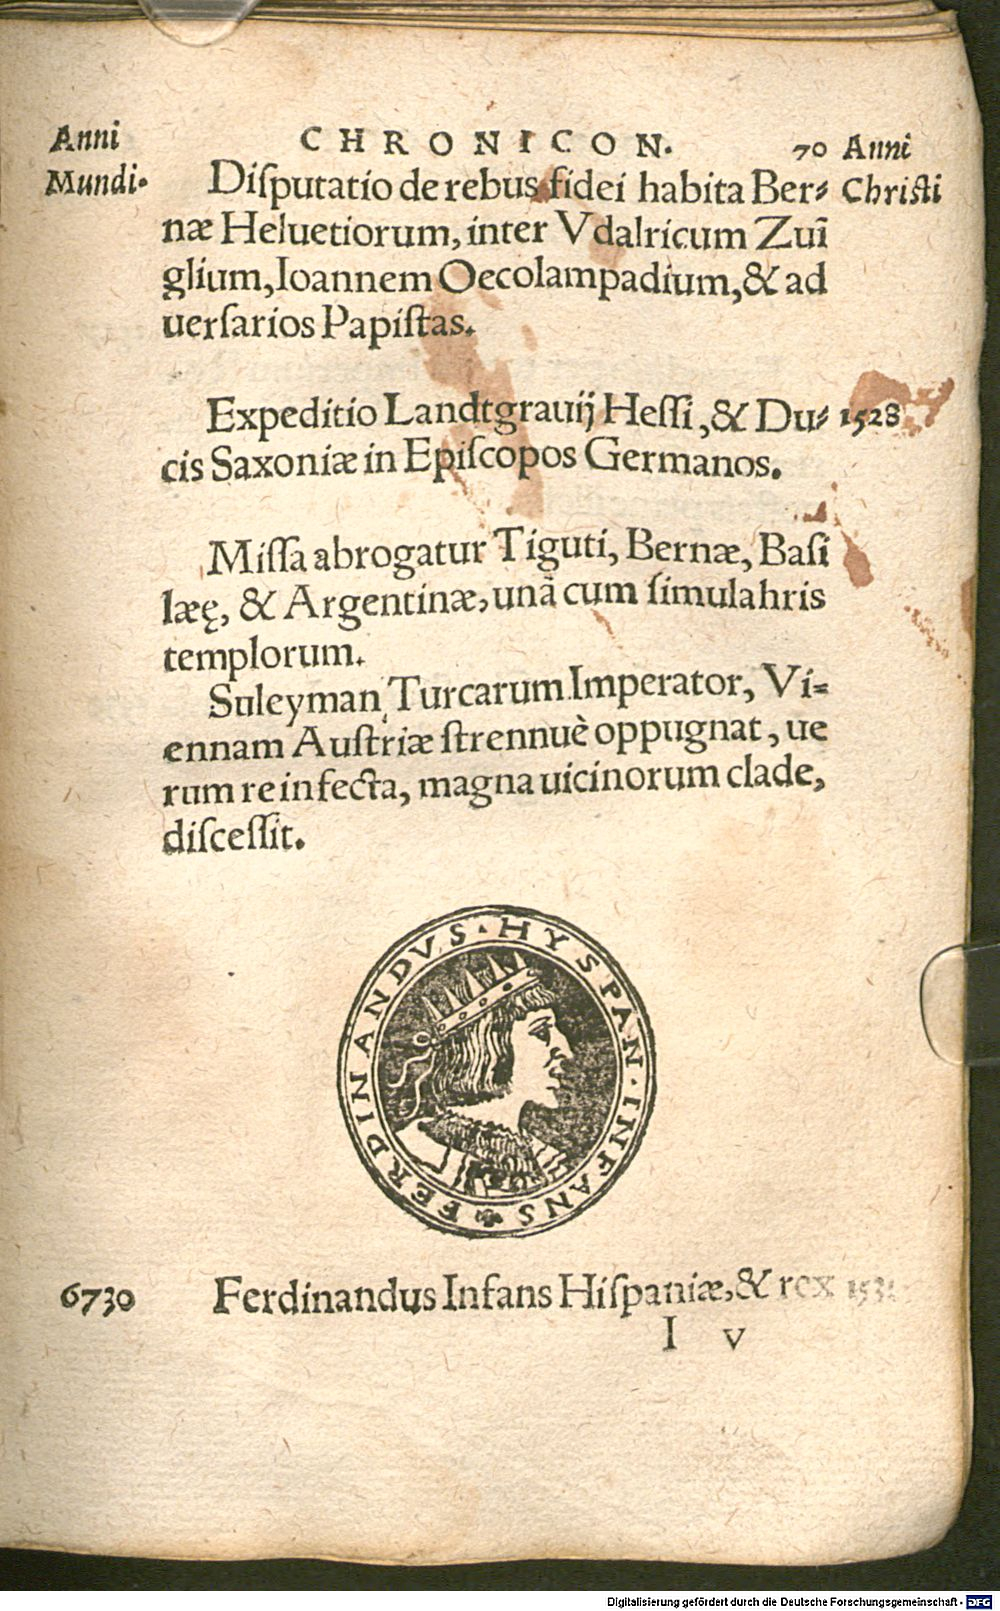 Anni CHRONICON. 70 Anni
Mundi. Disputatio de rebus fidei habita Ber⸗ Christi
næ Heluetiorum, inter Vdalricum Zuĩ
glium, Ioannem Oecolampadium, & ad
uersarios Papistas.
Expeditio Landtgrauij Hessi, & Du⸗ 1528
cis Saxoniæ in Episcopos Germanos.
Missa abrogatur Tiguti, Bernæ, Basi
læę, & Argentinæ, unã cum simulahris
templorum.
Suleyman Turcarum Imperator, Vi⸗
ennam Austriæ strennuè oppugnat, ue
rum re infecta, magna uicinorum clade,
discessit.
FERDINANDVS · HYSPAN · INFANS
6730 Ferdinandus Infans Hispaniæ, & rex
I v
Digitalisierung gefördert durch die Deutsche Forschungsgemeinschaft - DFG